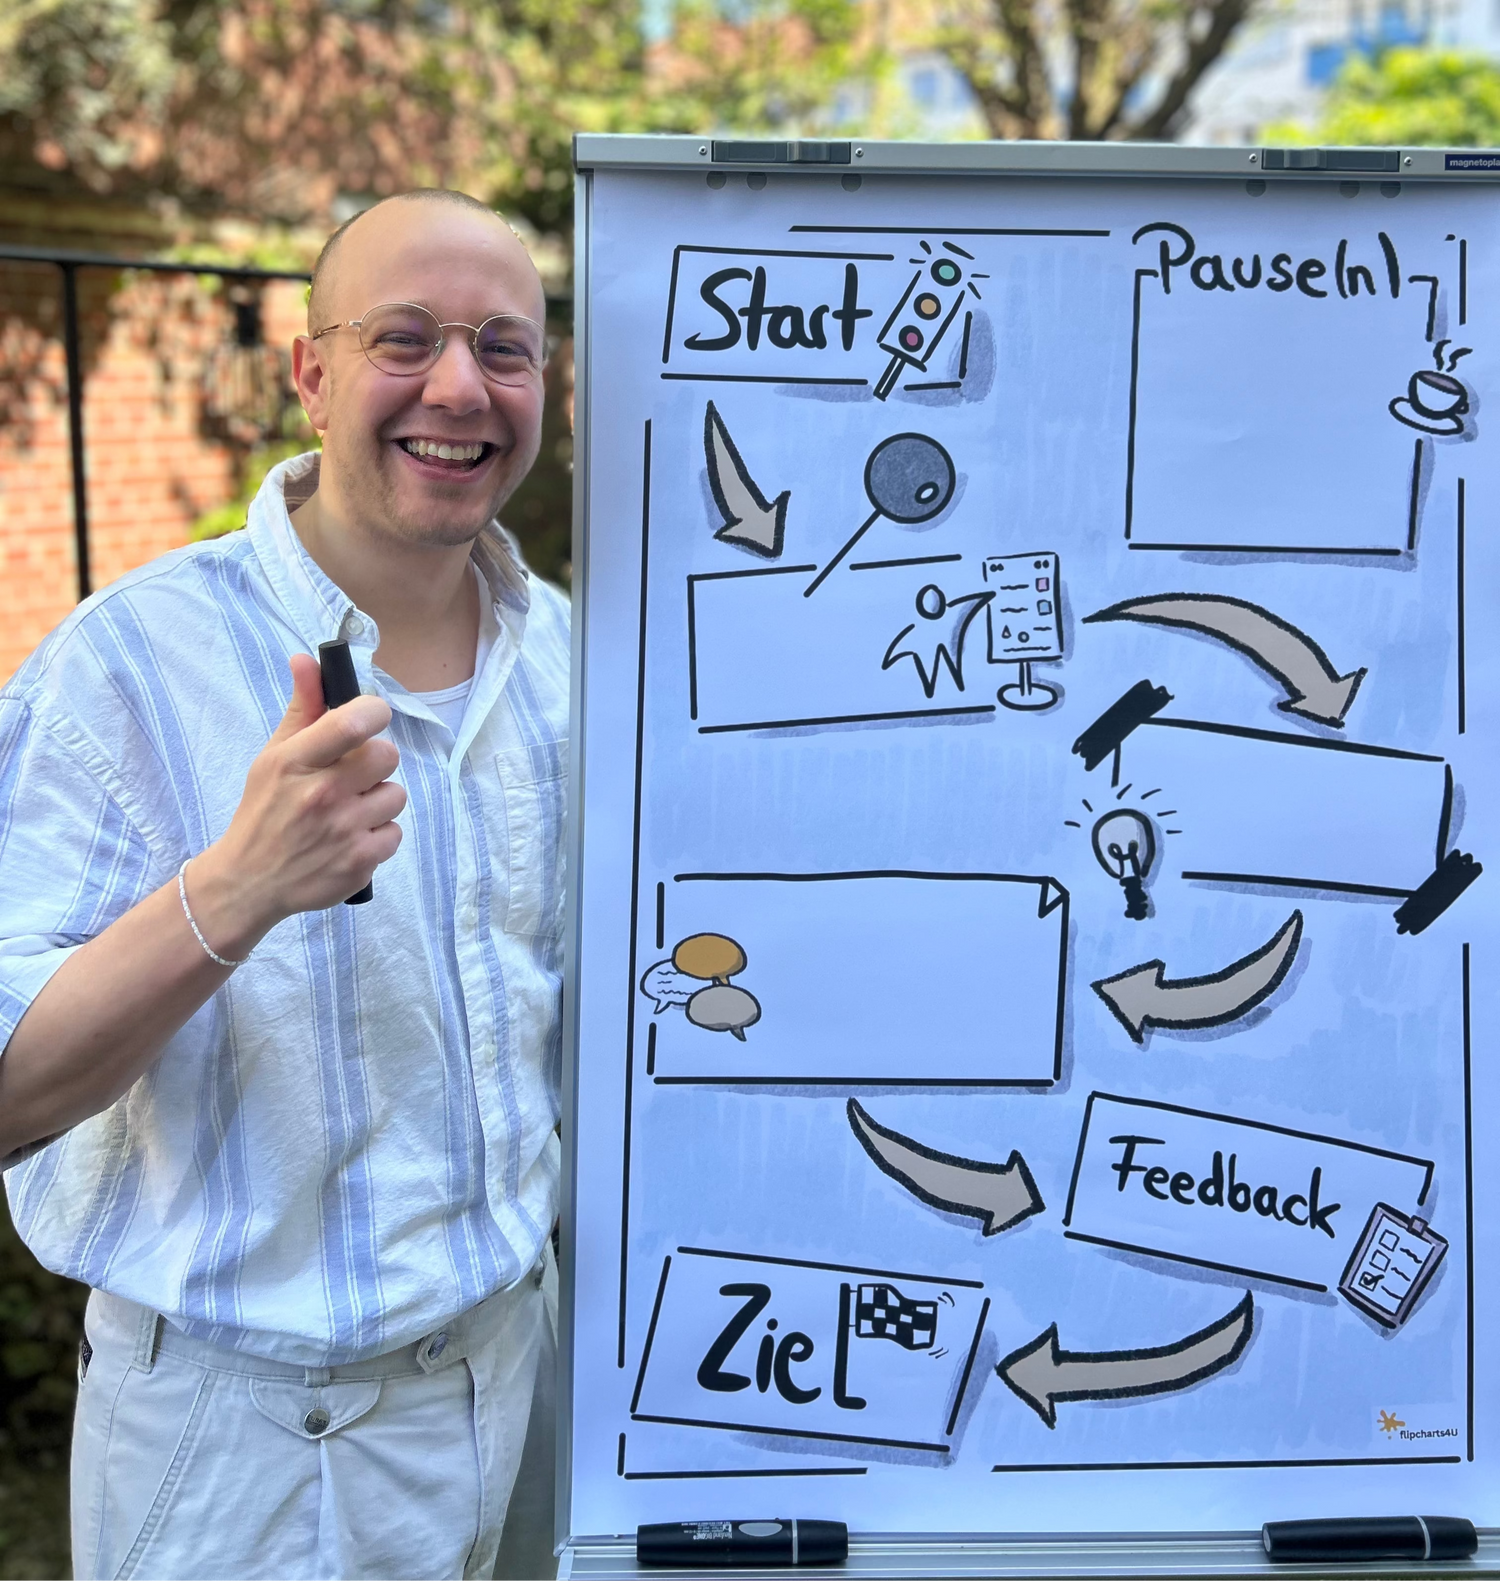 magnetopla
Start
Pause(n)
Feedback
Ziel
flipcharts4U